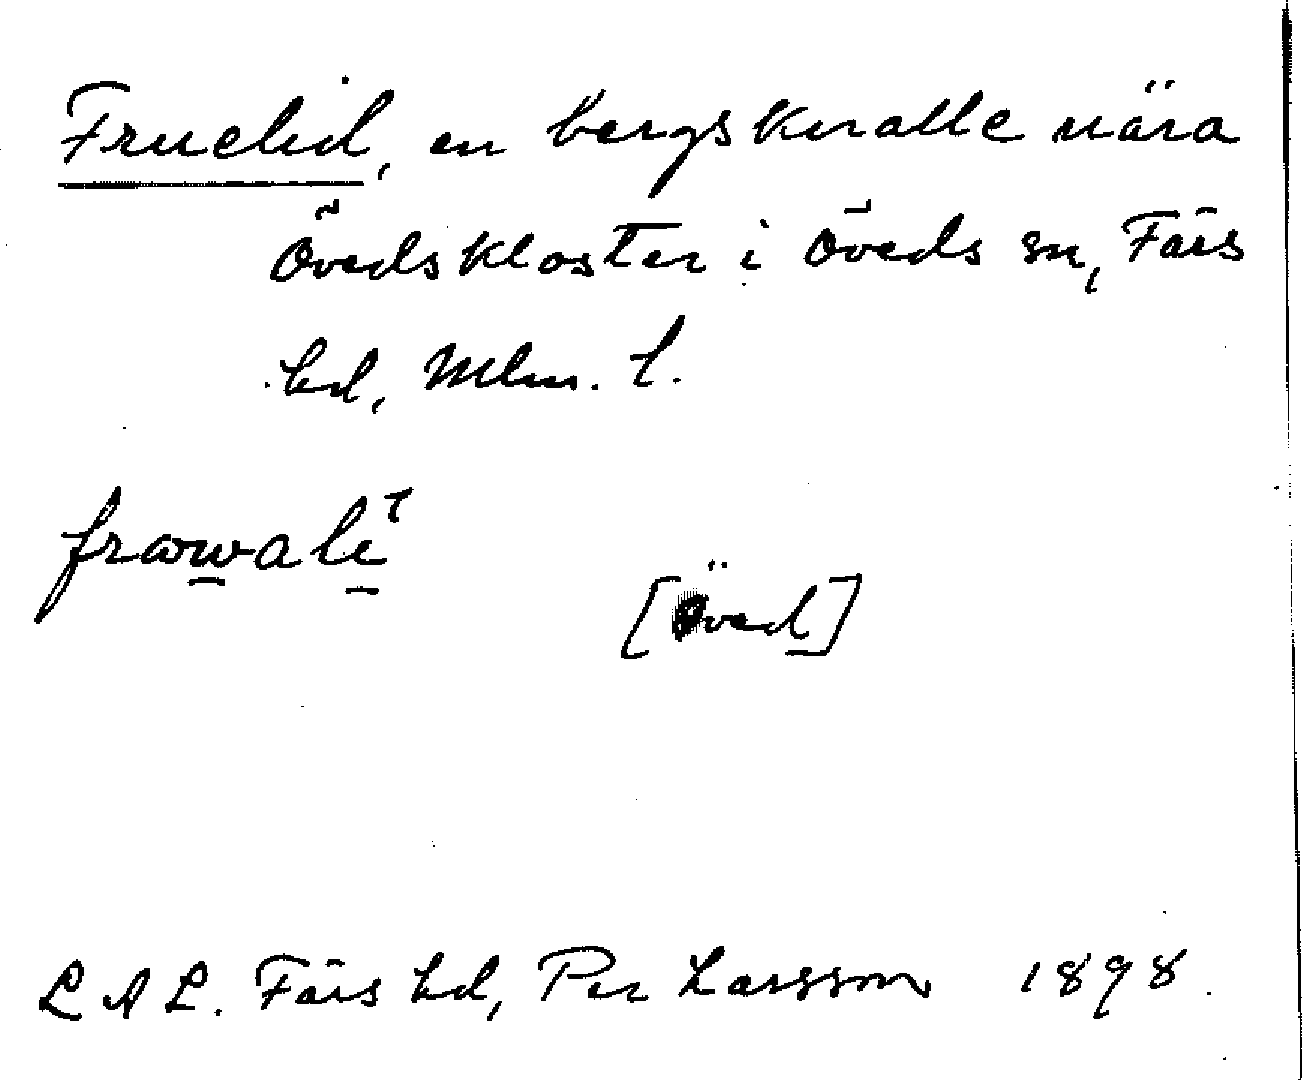 Fruelid, en bergsknalle nära
Övedskloster i Öveds sn, Färs
hd, Mlm. l.
[Öved]
L A L. Färs hd, Per Larsson 1898.